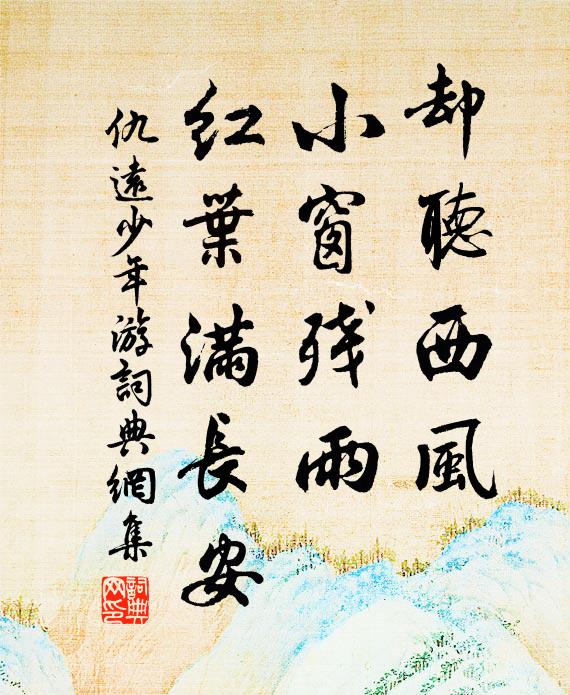 却聽西風
小窗殘雨
紅葉滿長安
仇遠少年游詞典網集